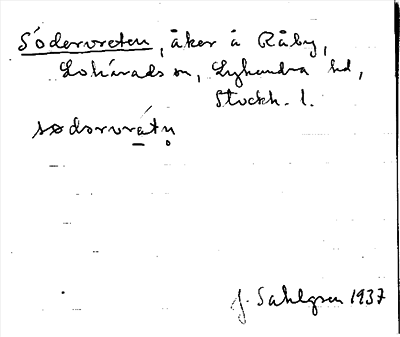 Södervreten, åker å Råby,
Lohärads sn, Lyhundra hd,
Stockh. l.
sødərvrétņ
J. Sahlgren 1937